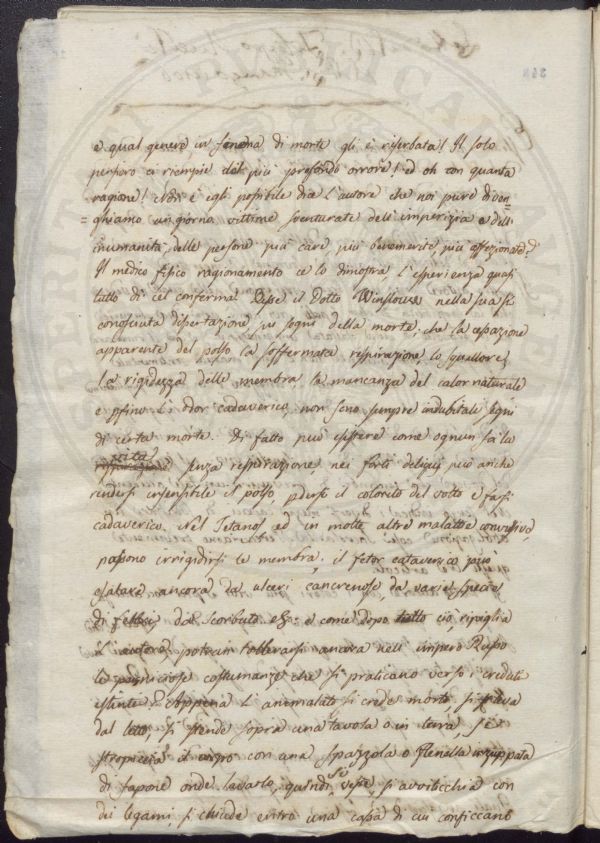 e qual genere in senona di morte gli è riserbata! Il solo
pensiero ci riempie del più profondo orrore! ed oh con quanta
ragione! Non è egli possibile dice l'autore che noi pure diven-
=ghiamo un giorno vittime sventurate dell'imperizia e dell'
inumanità delle persone più care, più benemerite, più affezionate?
Il medico fisico ragionamento ce lo dimostra l'esperienza quasi
tutto dì cel conferma. Disse il dotto Winslows nella sua sì
conosciuta dissertazione su segni della morte, che la cessazione
apparente del polso la soffermata respirazione, lo squallore,
la rigidezza delle membra, la mancanza del calor naturale
e persino l'odor cadaverico, non sono sempre indubitate segni
di certa morte. Di fatto può essere come ognun sa la
vita
respirazione senza respirazione nei forti deliqui può anche
rendersi insensibile il polso, perdersi il colorito del volto e farsi
cadaverico. Nel Tetano ed in molte altre malattie convulsive,
possono irrigidirsi le membra, il fetor cataverico può
esalare ancora da ulceri cancrenose, da varie specie
di febbri, dal Scorbuto &c: e come dopo tutto ciò, ripiglia
l'autore, potean tollerarsi ancora nell'impero Russo
le perniciose costumanze che si praticano verso i creduti
estinti? Appena l'ammalato si crede morto, si leva
dal letto si stende sopra una tavola o in terra, si
stropiccia il corpo con una spazzola o flenella inzuppata
di sapone onde lavarlo, quindi si veste, si avviticchia con
dei legami, si chiude entro una cassa di cui conficcano